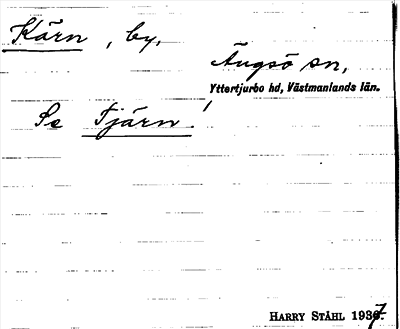 Kärn, by,
Ängsö sn,
Yttertjurbo hd, Västmanlands län.
Se Tjärn!
HARRY STÅHL 1937.